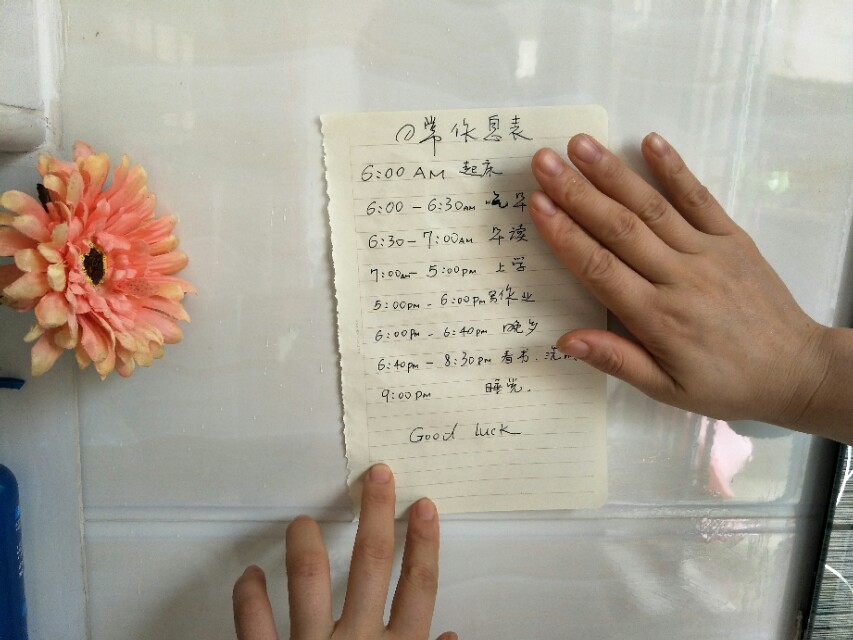 常作息表
6:00 AM 起床
6:00 - 6:30AM 吃早
6:30 - 7:00AM 早读
7:00am - 5:00pm 上学
5:00pm - 6:00pm 写作业
6:00pm - 6:40pm 晚
6:40pm - 8:30pm 看书、洗
9:00pm 睡觉.
Good luck